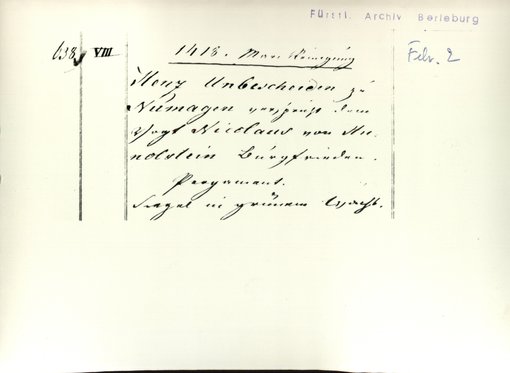 Fürstl. Archiv Berleburg
638 VIII 1418. Mar. Reinigung Febr. 2
Henz Unbescheiden zu
Numagen verspricht dem
Vogt Nicolaus von Hu-
nolstein Burgfrieden.
Pergament.
Siegel in grünem Wachs.